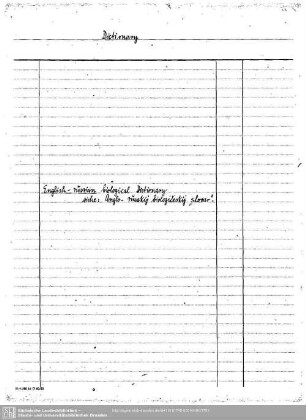 Dictionary
English - russian biological Dictionary
siehe: Anglo- russkij biologičeskij slovar'.
Sächsische Landesbibliothek -
Staats- und Universitätsbibliothek Dresden